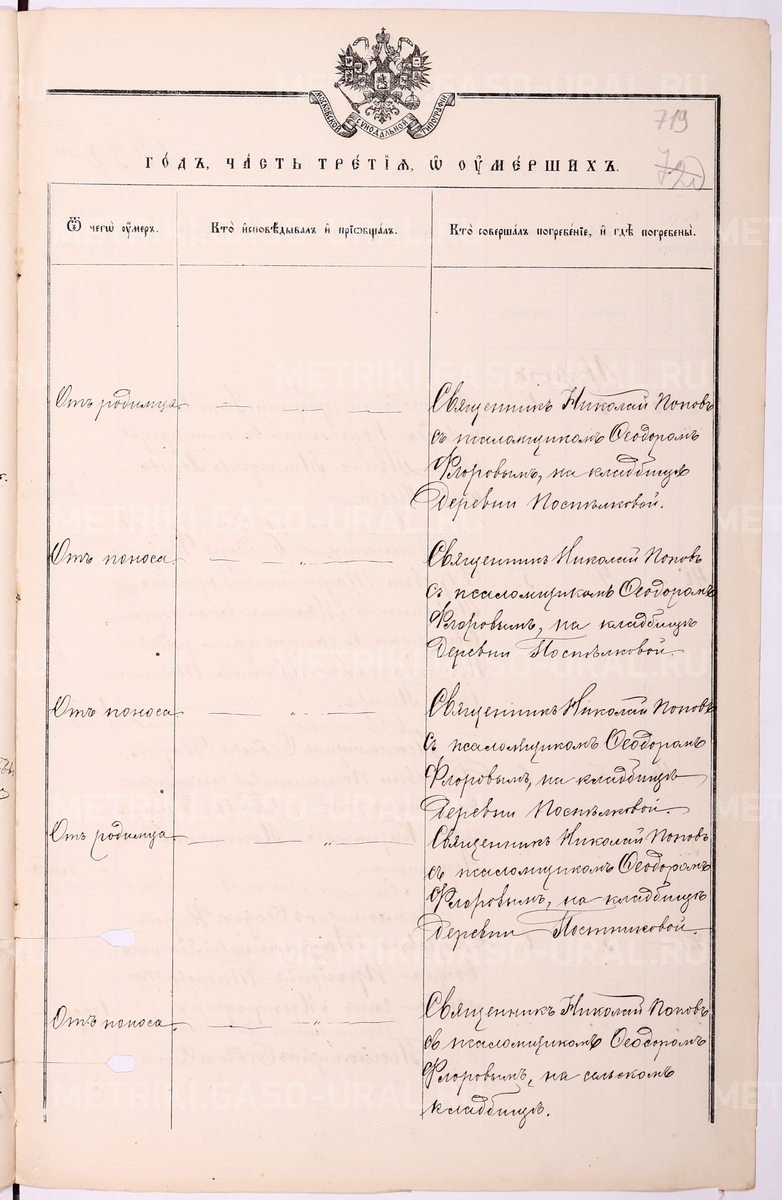 МОСКОВСКОЙ СѴНОДАЛЬНОЙ ТИПОГРАФІИ
719
720
го́дъ, ча́сть тре́тїѧ, ѡ҆ оу҆ме́ршихъ.
Ѿ чегѡ̀ оу҆́меръ.
Кто̀ и҆сповѣ́дывалъ и҆ прїѡбща́лъ.
Кто̀ соверша́лъ погребе́нїе, и҆ гдѣ̀ погребены̀.
Отъ родимца
— „ —
Священникъ Николай Поповъ
съ псаломщикомъ Ѳеодоромъ
Флоровымъ, на кладбищѣ
Деревни Поспѣлковой.
Отъ поноса
— „ —
Священникъ Николай Поповъ
съ псаломщикомъ Ѳеодоромъ
Флоровымъ, на кладбищѣ
Деревни Поспѣлковой.
Отъ поноса
— „ —
Священникъ Николай Поповъ
съ псаломщикомъ Ѳеодоромъ
Флоровымъ, на кладбищѣ
Деревни Поспѣлковой.
Отъ родимца
— „ —
Священникъ Николай Поповъ
съ псаломщикомъ Ѳеодоромъ
Флоровымъ, на кладбищѣ
деревни Постниковой.
Отъ поноса
— „ —
Священникъ Николай Поповъ
съ псаломщикомъ Ѳеодоромъ
Флоровымъ, на сельскомъ
кладбищѣ.
METRIKI.GASO-URAL.RU